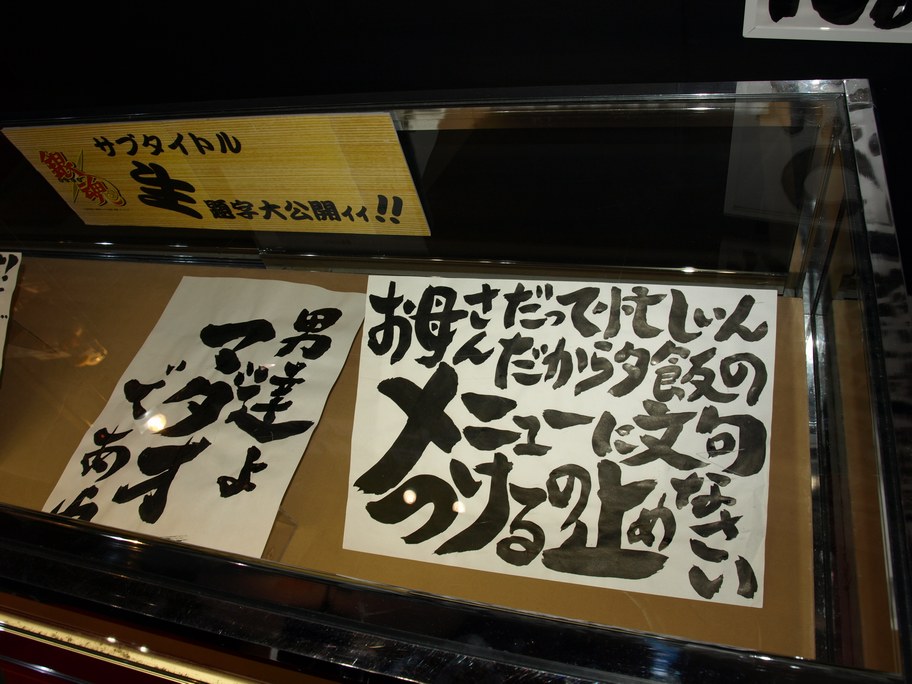 サブタイトル
生
題字大公開ィィ!!
銀魂
男達よ
マダオ
で
あ
お母さんだって忙しいん
だから夕飯の
メニューに文句
つけるの止めなさい